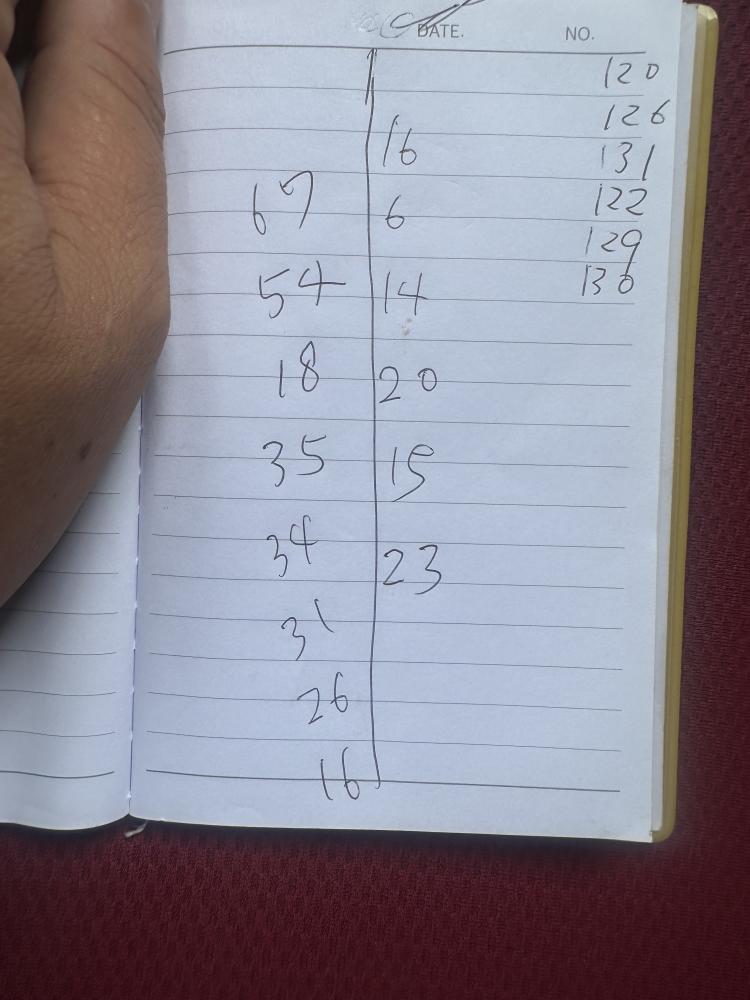 DATE. NO.
120
126
16 131
67 6 122
129
54 14 130
18 20
35 15
34 23
31
26
16